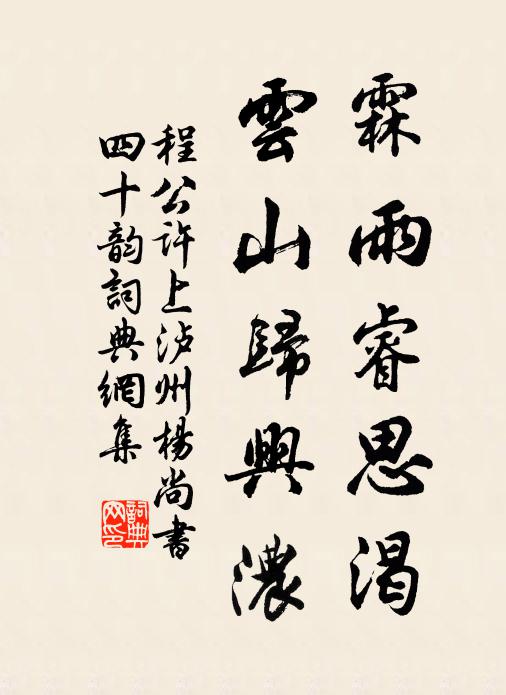 霖雨睿思渴
雲山歸興濃
程公許上泸州楊尚書
四十韵詞典網集
詞典网印